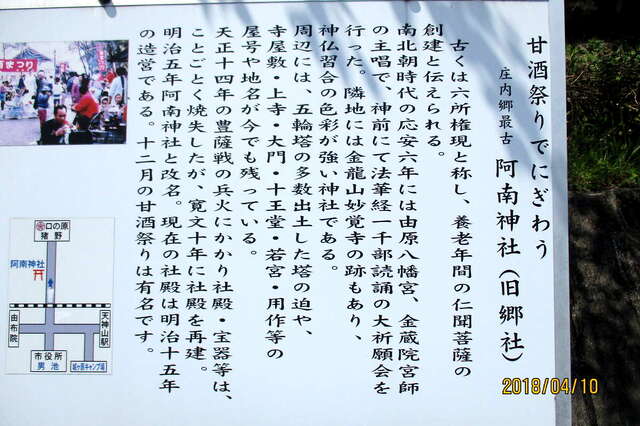 甘酒祭りでにぎわう
庄内郷最古 阿南神社(旧郷社)
古くは六所権現と称し、養老年間の仁聞菩薩の
創建と伝えられる。
南北朝時代の応安六年には由原八幡宮、金蔵院宮師
の主唱で、神前にて法華経一千部読誦の大祈願会を
行った。隣地には金龍山妙覚寺の跡もあり、
神仏習合の色彩が強い神社である。
周辺には、五輪塔の多数出土した塔の迫や、
寺屋敷・上寺・大門・十王堂・若宮・用作等の
屋号や地名が今でも残っている。
天正十四年の豊薩戦の兵火にかかり社殿・宝器等は、
ことごとく焼失したが、寛文十年に社殿を再建。
明治五年阿南神社と改名。現在の社殿は明治十五年
の造営である。十二月の甘酒祭りは有名です。
まつり
口の原
猪野
阿南神社
由布院
天神山駅
市役所
男池
城ヶ原キャンプ場
2018/04/10